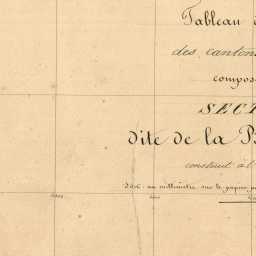 Tableau
des canton
compos
SECT
dite de la P
construit à l
un millimètre sur le papier